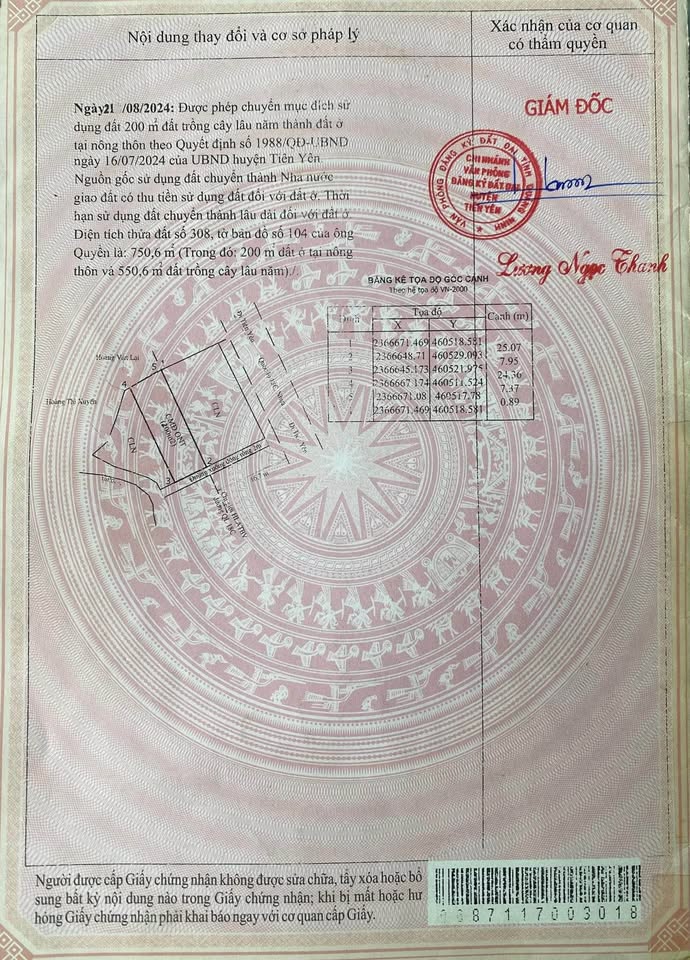 Nội dung thay đổi và cơ sở pháp lý
Xác nhận của cơ quan
có thẩm quyền
Ngày 21 /08/2024: Được phép chuyển mục đích sử
dụng đất 200 m² đất trồng cây lâu năm thành đất ở
tại nông thôn theo Quyết định số 1988/QĐ-UBND
ngày 16/07/2024 của UBND huyện Tiên Yên.
Nguồn gốc sử dụng đất chuyển thành Nhà nước
giao đất có thu tiền sử dụng đất đối với đất ở. Thời
hạn sử dụng đất chuyển thành lâu dài đối với đất ở.
Diện tích thửa đất số 308, tờ bản đồ số 104 của ông
Quyền là: 750,6 m² (Trong đó: 200 m² đất ở tại nông
thôn và 550,6 m² đất trồng cây lâu năm)./.
GIÁM ĐỐC
VĂN PHÒNG ĐĂNG KÝ ĐẤT ĐAI TỈNH QUẢNG NINH
CHI NHÁNH
VĂN PHÒNG
ĐĂNG KÝ ĐẤT ĐAI
HUYỆN
TIÊN YÊN
Lương Ngọc Thanh
BẢNG KÊ TỌA ĐỘ GÓC CẠNH
Theo hệ tọa độ VN-2000
Đỉnh
Tọa độ
Cạnh (m)
X
Y
1
2366671.469
460518.581
25.07
2
2366648.71
460529.093
7.95
3
2366645.173
460521.975
24.36
4
2366667.174
460511.524
7.37
5
2366671.08
460517.78
0.89
2366671.469
460518.581
Hoàng Văn Lai
Hoàng Thị Xuyến
Đi Tiên Yên
1
5
4
CLN
CMĐ-ONT
(200m2)
CLN
3
2
Người được cấp Giấy chứng nhận không được sửa chữa, tẩy xóa hoặc bổ
sung bất kỳ nội dung nào trong Giấy chứng nhận; khi bị mất hoặc hư
hỏng Giấy chứng nhận phải khai báo ngay với cơ quan cấp Giấy.
087117003018